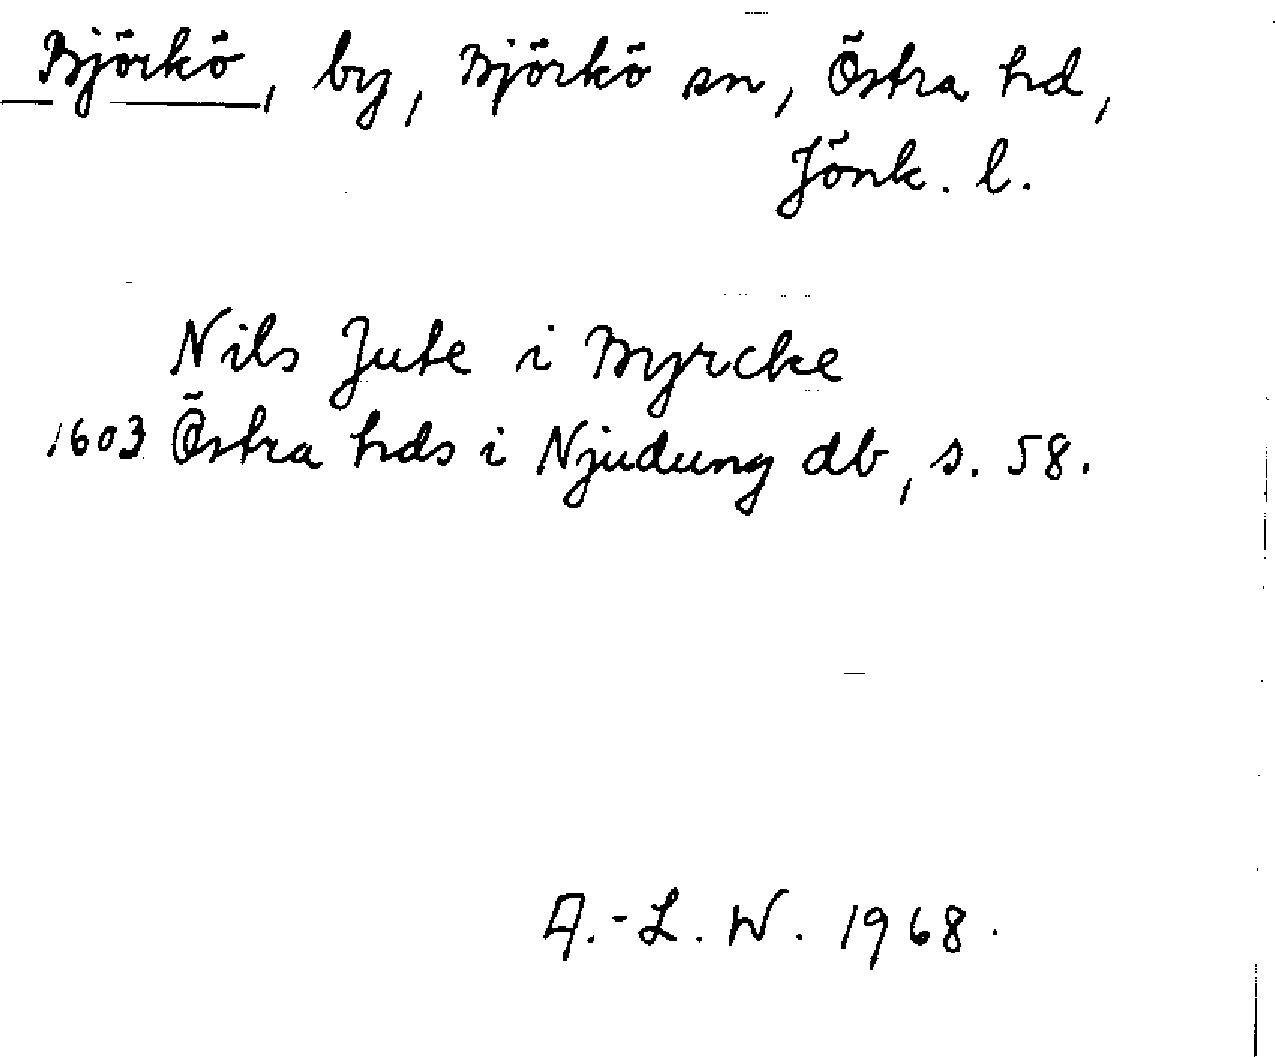 Björkö, by, Björkö sn, Östra hd,
Jönk. l.
Nils Jute i Byrcke
1603 Östra hds i Njudung db, s. 58.
A.-L. W. 1968.